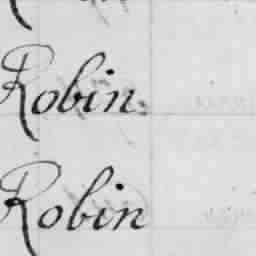 Robin.
Robin